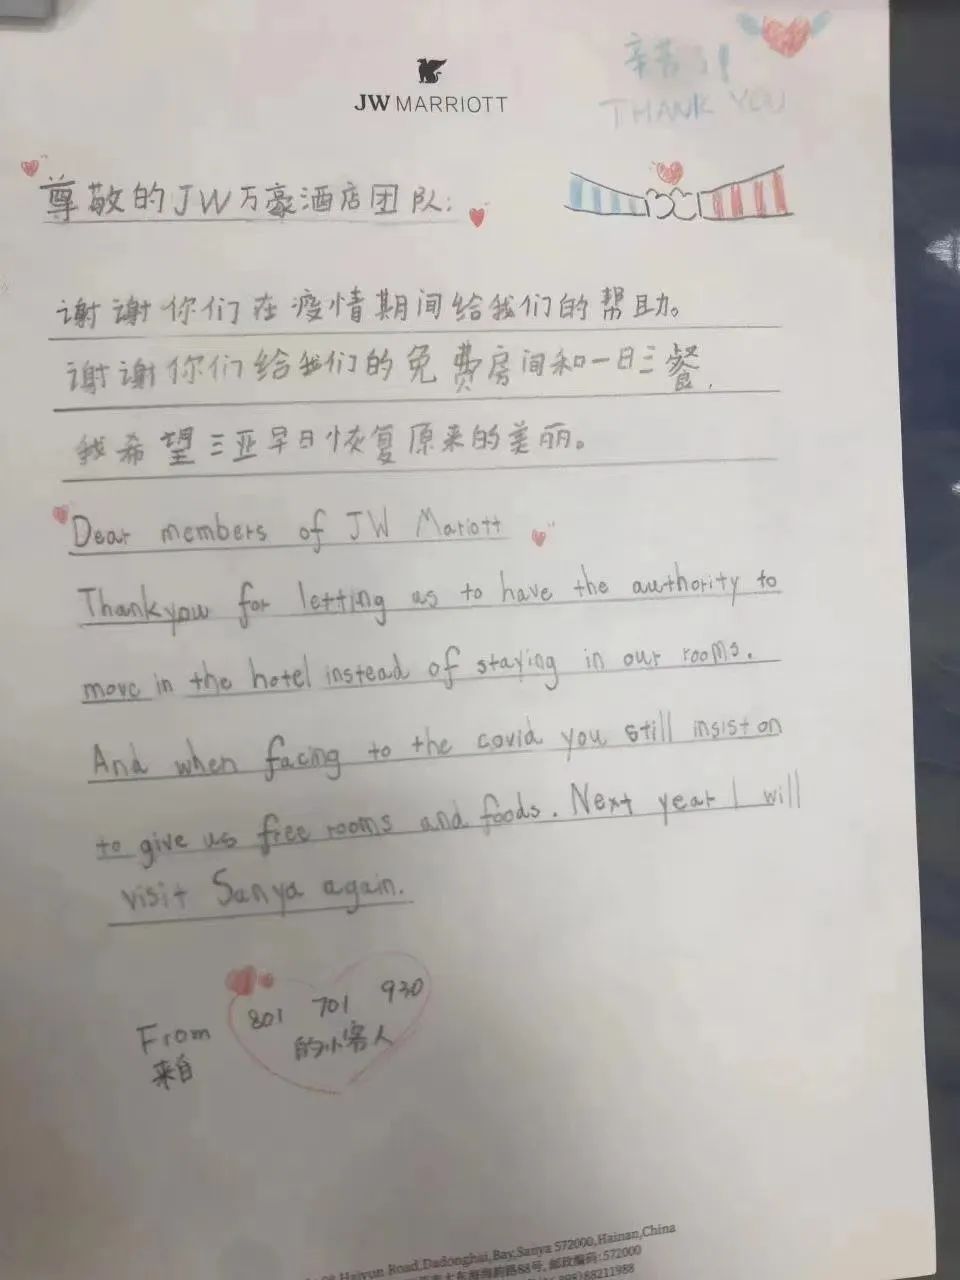 辛苦了!
THANK YOU
JW MARRIOTT
尊敬的JW万豪酒店团队:
谢谢你们在疫情期间给我们的帮助。
谢谢你们给我们的免费房间和一日三餐,
我希望三亚早日恢复原来的美丽。
Dear members of JW Mariott
Thankyou for letting us to have the authority to
move in the hotel instead of staying in our rooms.
And when facing to the covid you still insist on
to give us free rooms and foods. Next year I will
visit Sanya again.
From 801 701 930
来自 的小客人
Haiyun Road,Dadonghai,Bay,Sanya 572000,Hainan,China
路88号, 邮政编码:572000
88211988